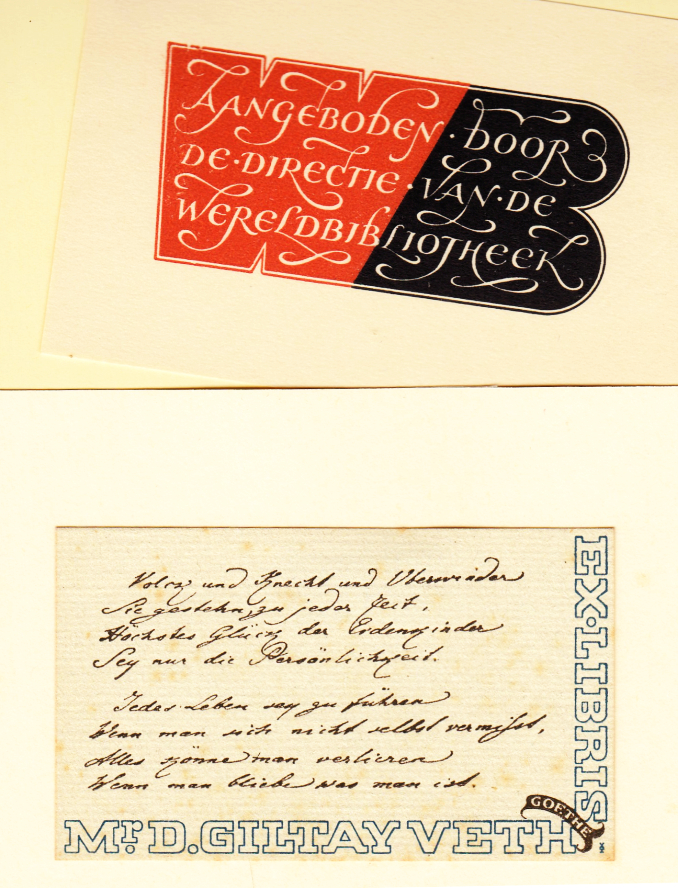 AANGEBODEN · DOOR
DE · DIRECTIE · VAN · DE
WERELDBIBLIOTHEEK
Volck und Knecht und Uberwinder
Sie gestehn, zu jeder Zeit,
Höchstes Glück der Erdenkinder
Sey nur die Persönlichkeit.
Jedes Leben sey zu führen
Wenn man sich nicht selbst vermisst,
Alles könne man verlieren
Wenn man bliebe was man ist.
EX·LIBRIS
GOETHE
Mr. D. GILTAY VETH